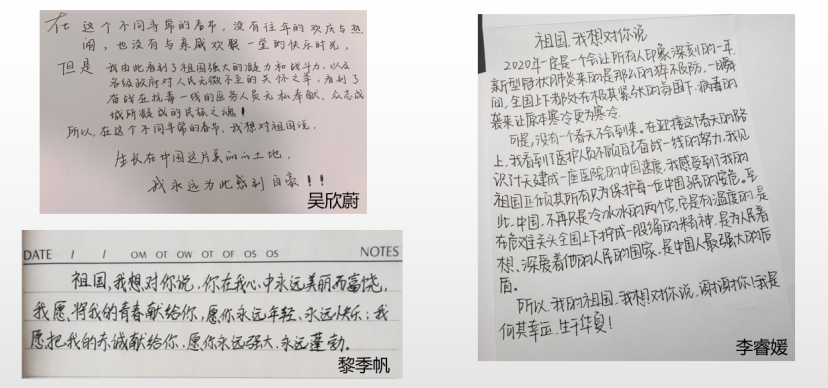 在这个不同寻常的春节,没有往年的欢庆与热
闹,也没有与亲戚欢聚一堂的快乐时光,
但是 我由此看到了祖国强大的凝聚力和战斗力,以及
各级政府对人民无微不至的关怀之举,看到了
奋战在抗毒一线的医务人员无私奉献、众志成
城所凝成的民族之魂!
所以,在这个不同寻常的春节,我想对祖国说,
生长在中国这片美丽的土地,
我永远为此感到自豪!!
吴欣蔚
DATE / / OM OT OW OT OF OS OS NOTES
祖国,我想对你说,你在我心中永远美丽而富饶,
我愿将我的青春献给你,愿你永远年轻、永远快乐;我
愿把我的赤诚献给你,愿你永远强大、永远蓬勃。
黎季帆
祖国,我想对你说
2020年一定是一个会让所有人印象深刻的一年,
新型冠状肺炎来的是那么的猝不及防,一瞬
间,全国上下都处在极其紧张的氛围下,病毒的
袭来让原本寒冷更为寒冷.
可是,没有一个春天不会到来。在迎接这春天的路
上,我看到了医护人员不顾自己奋战一线的努力,我见
识了十天建成一座医院的中国速度,我感受到了我的
祖国正倾其所有只为保护每一位中国子民的安危。至
此,中国,不再只是冷冰冰的两个字,它是有温度的,是
在危难关头全国上下拧成一股绳的精神,是为人民着
想、深爱着他的人民的国家,是中国人最强大的后
盾。
所以,我的祖国,我想对你说,谢谢你!我是
何其幸运,生于华夏!
李睿媛